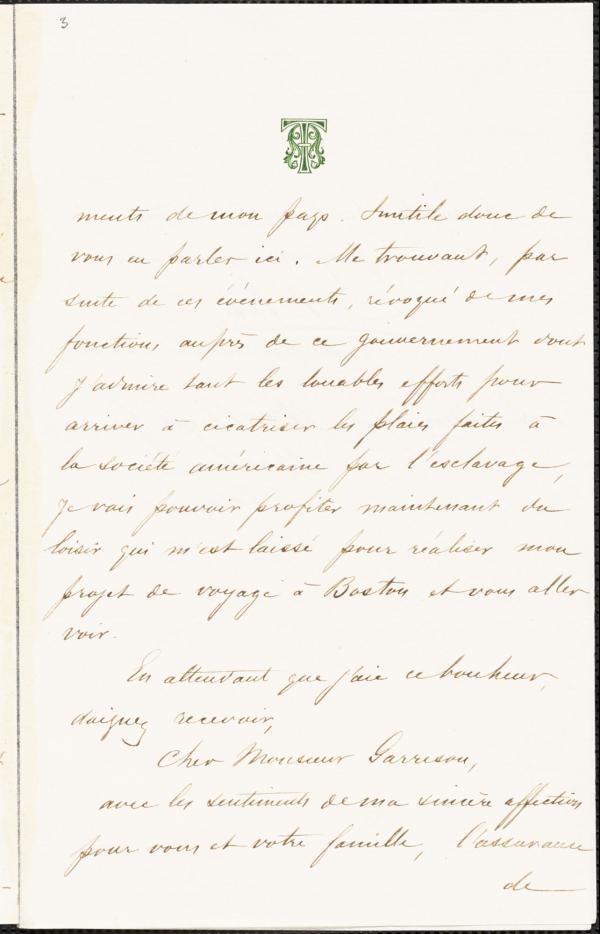 3
ments de mon pays. Inutile donc de
vous en parler ici. Me trouvant, par
suite de ces événements, révoqué de mes
fonctions auprès de ce gouvernement dont
j'admire tant les louables efforts pour
arriver à cicatriser les plaies faites à
la société américaine par l'esclavage,
je vais pouvoir profiter maintenant du
loisir qui m'est laissé pour réaliser mon
projet de voyage à Boston et vous aller
voir.
En attendant que j'aie ce bonheur,
daignez recevoir,
Cher Monsieur Garrison,
avec les sentiments de ma sincère affection
pour vous et votre famille, l'assurance
de